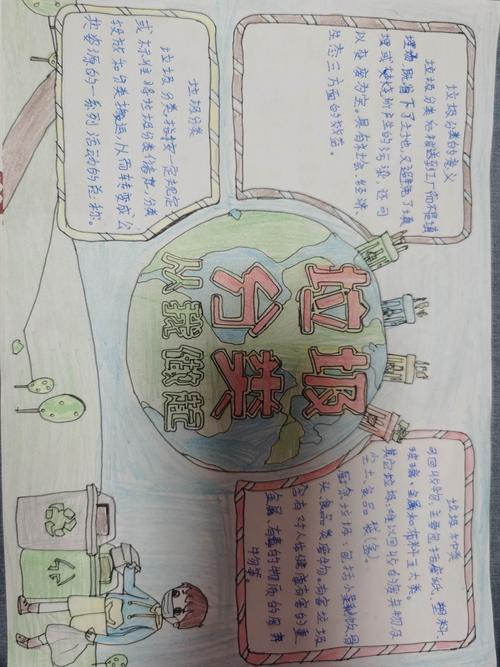 垃圾分类的意义
垃圾分类 推送到工厂而不是填
埋场,既省下了土地,又避免了填
埋或焚烧所产生的污染,还可
以变废为宝,具有社会、经济、
生态三方面的效益。
垃圾种类
可回收物:主要包括废纸、塑料、
玻璃、金属和布料五大类。
其它垃圾:难以回收的废弃物及
尘土、食品袋(盒)。
厨余垃圾:包括剩菜 骨
头、食品类废物。有害垃圾
含有对人体健康有害的重
金属、有毒的物质的废弃
物等。
垃圾
分类
从我做起
垃圾分类
垃圾分类,指按一定规定
或标准将垃圾分类储存、分类
投放和分类搬运,从而转变成公
共资源的一系列活动的总称。